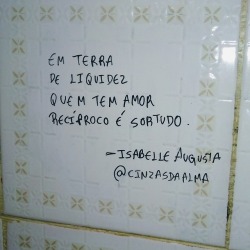 EM TERRA
DE LIQUIDEZ
QUEM TEM AMOR
RECÍPROCO É SORTUDO.
– ISABELLE AUGUSTA
@CINZASDAALMA